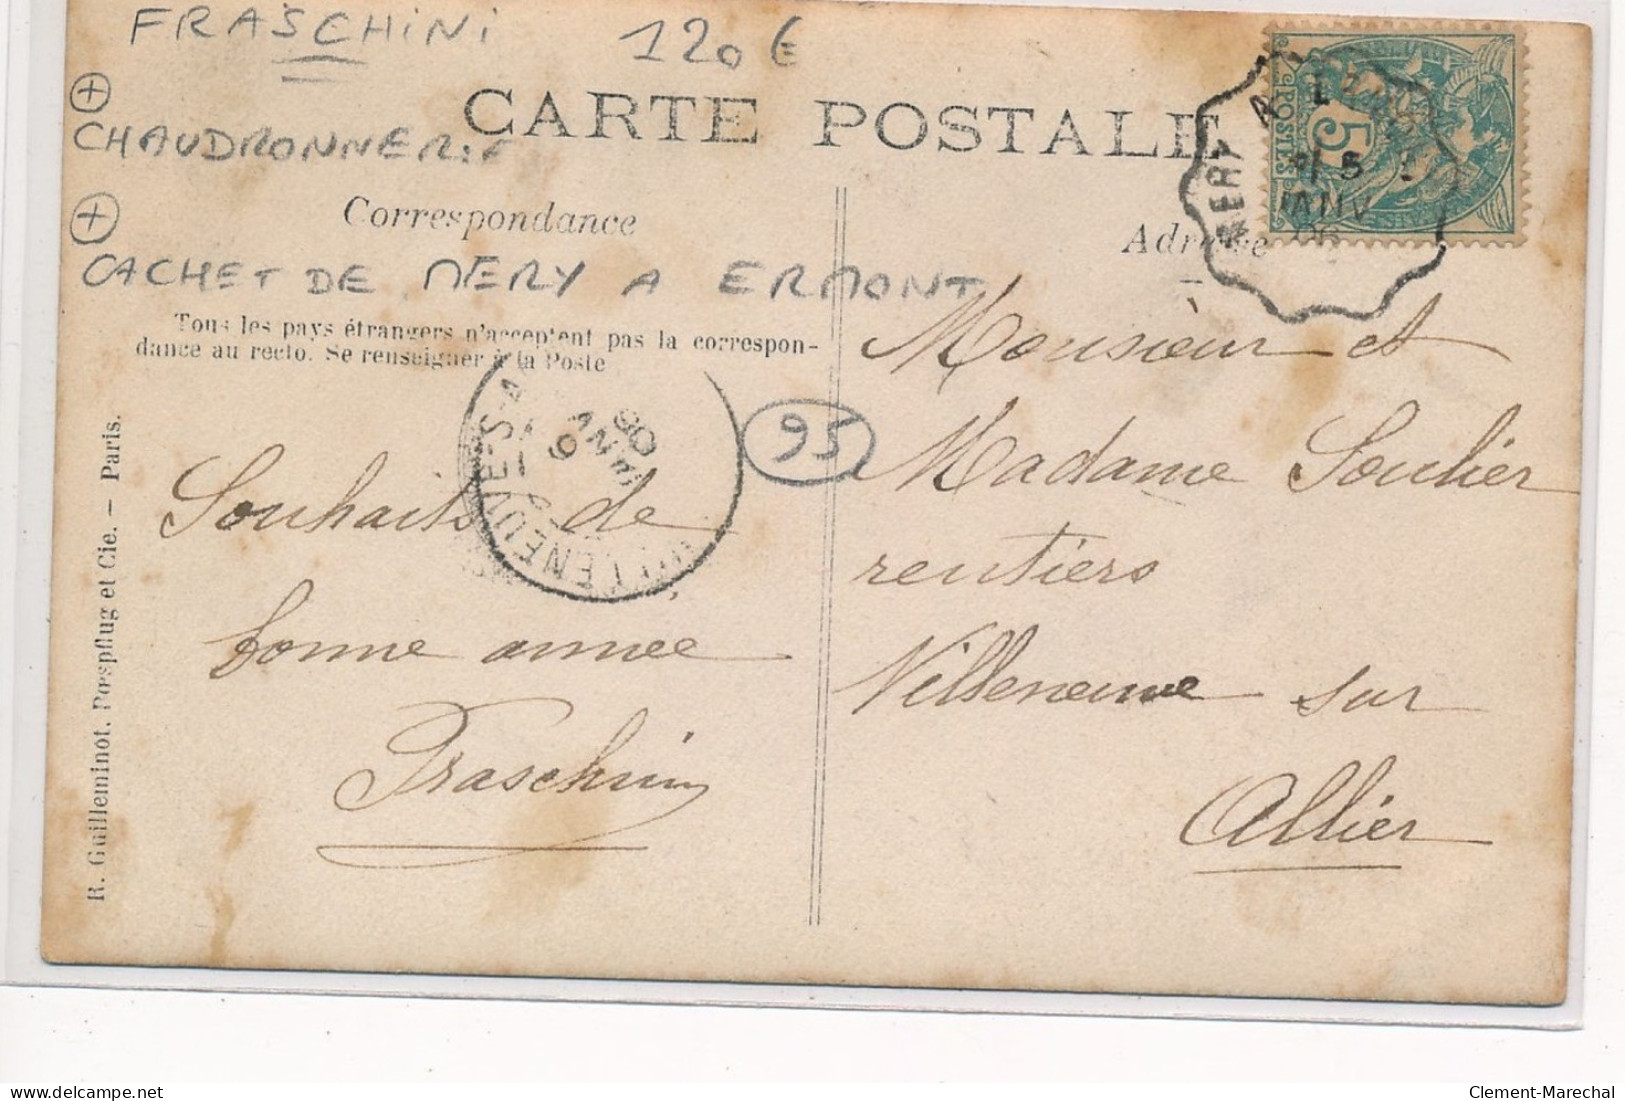 FRASCHINI 120€
CARTE POSTALE
+
CHAUDRONNERIE
Correspondance
+
Adresse
CACHET DE MERY A ERMONT
Tous les pays étrangers n'acceptent pas la correspon-
dance au recto. Se renseigner à la Poste
MERY A
5
JANV
06
5
POSTES
95
VILLENEUVE-S-A
6
JANV
06
Souhaits de
bonne année
Fraschini
Monsieur et
Madame Soulier
rentiers
Villeneuve sur
Allier
R. Guilleminot, Pœspflug et Cie. — Paris.
Clement-Marechal